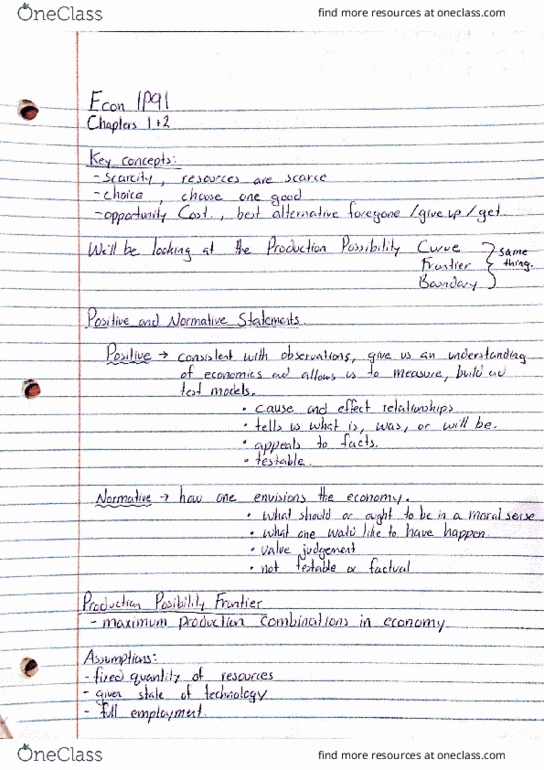 OneClass
find more resources at oneclass.com
Econ 1P91
Chapters 1+2
Key concepts:
- scarcity, resources are scarce
- choice, choose one good
- opportunity Cost, best alternative foregone / give up / get
We'll be looking at the Production Possibility Curve
Frontier
Boundary
same thing.
Positive and Normative Statements.
Positive → consistent with observations, give us an understanding
of economics ad allows us to measure, build ad
test models.
• cause and effect relationships
• tells us what is, was, or will be.
• appeals to facts.
• testable.
Normative → how one envisions the economy.
• what should or ought to be in a moral sense
• what one would like to have happen
• value judgement
• not testable or factual
Production Posibility Frontier
- maximum production combinations in economy
Assumptions:
- fixed quantity of resources
- given state of technology
- full employment.
OneClass
find more resources at oneclass.com